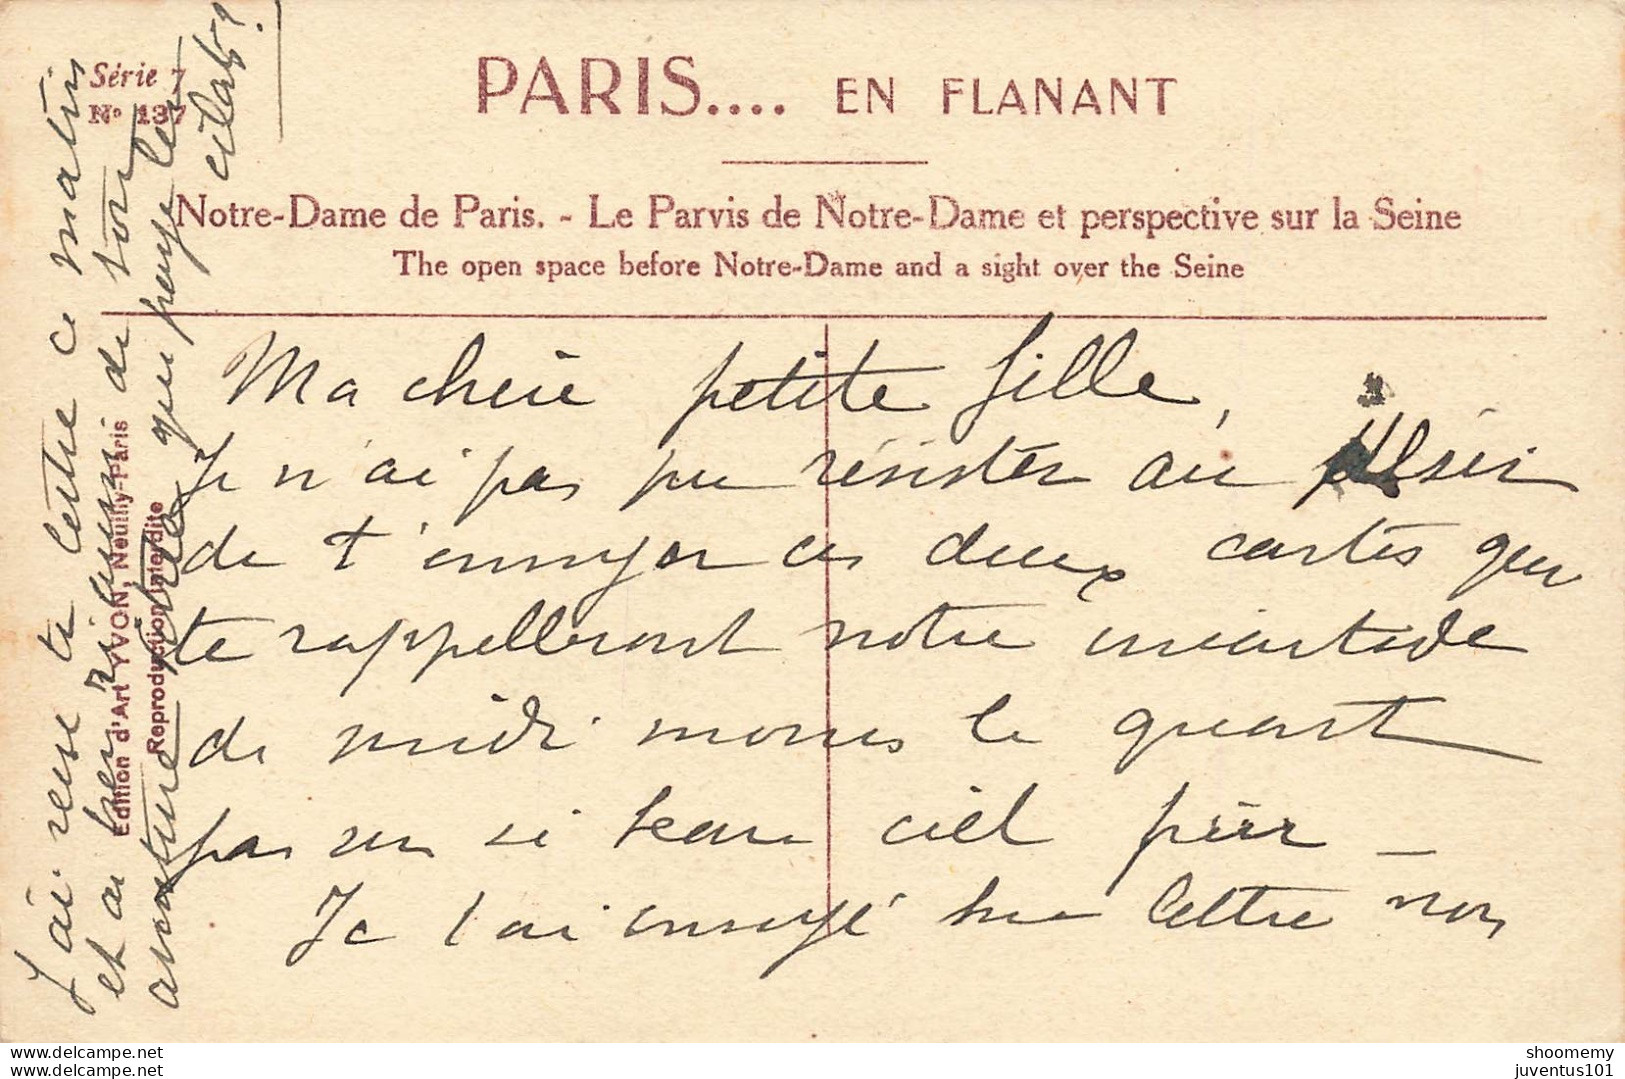 Série 7
N° 137
PARIS.... EN FLANANT
Notre-Dame de Paris. - Le Parvis de Notre-Dame et perspective sur la Seine
The open space before Notre-Dame and a sight over the Seine
Ma chère petite fille,
Je n'ai pas pu résister au désir
de t'envoyer ces deux cartes qui
te rappelleront notre incartade
de midi moins le quart
par un si beau ciel pur —
Je t'ai envoyé une lettre non
J'ai reçu ta lettre ce matin
et ai bien de ton
aventure que
Edition d'Art YVON, Neuilly-Paris
Reproduction interdite
www.delcampe.net
www.delcampe.net
shoomemy
juventus101